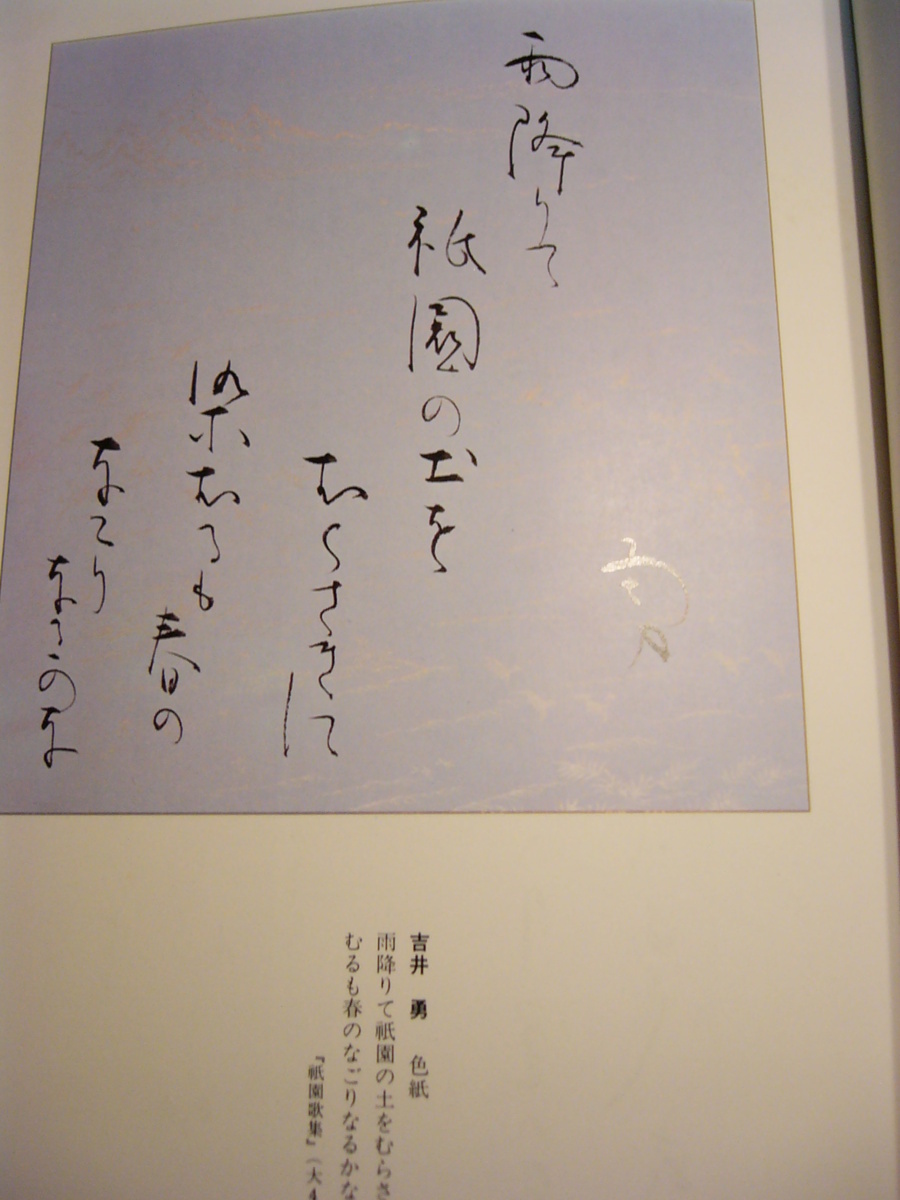 雨降りて
祇園の土を
むらさきに
染むるも
春の
なごり
なるかな
吉井 勇 色紙
雨降りて祇園の土をむらさ
むるも春のなごりなるかな
『祇園歌集』(大4